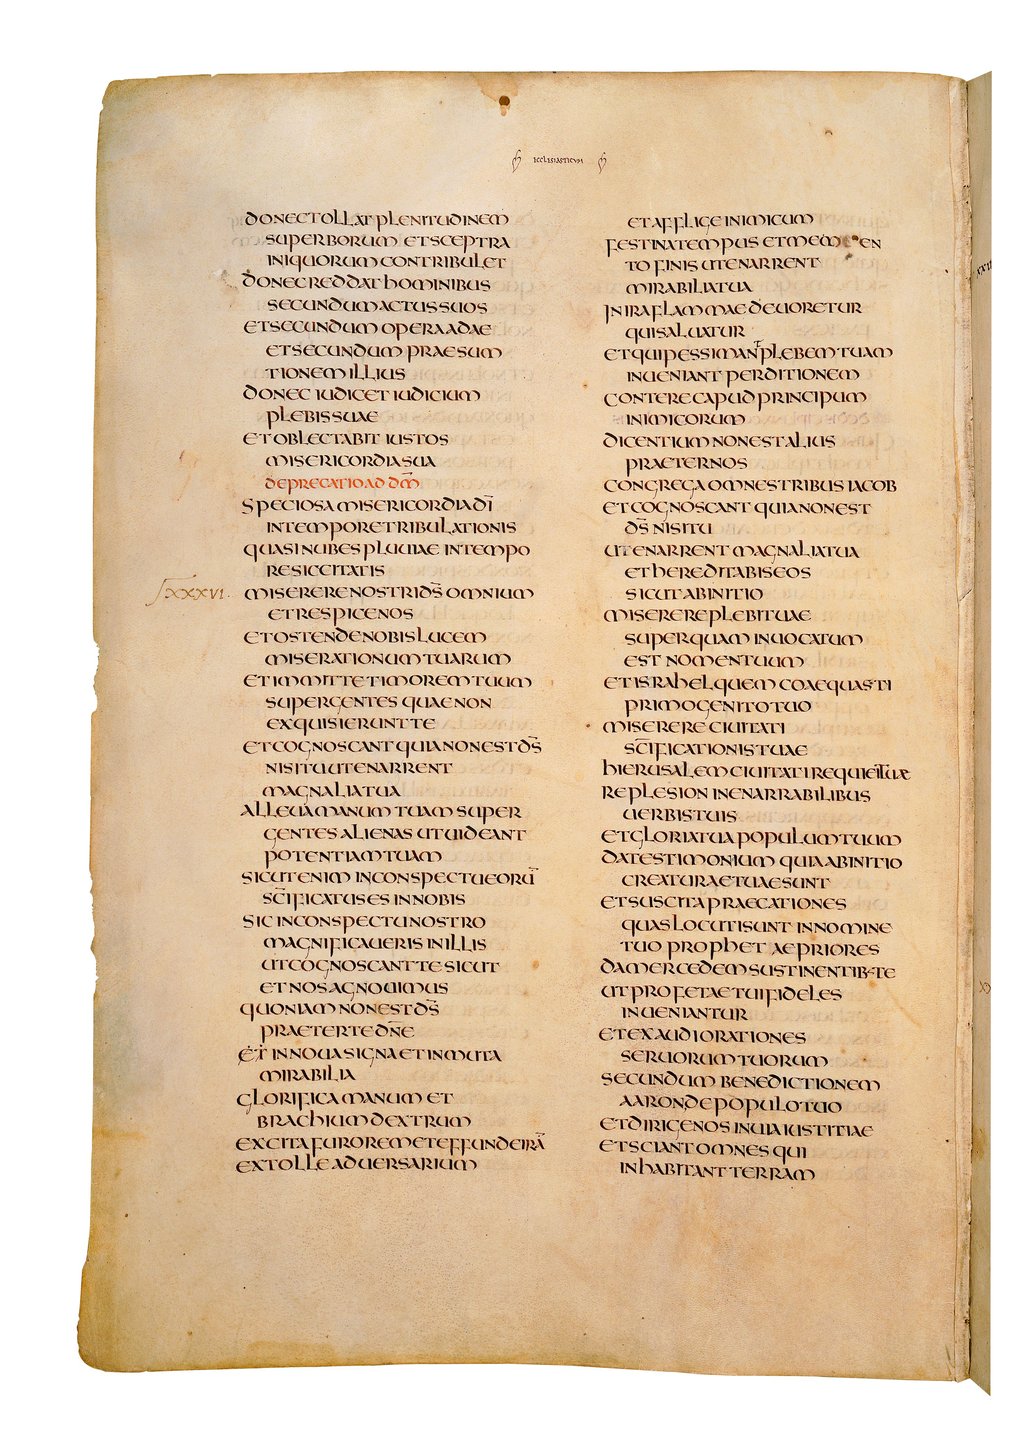 ECCLESIASTICUM
DONEC TOLLAT PLENITUDINEM
SUPERBORUM ET SCEPTRA
INIQUORUM CONTRIBULET
DONEC REDDAT HOMINIBUS
SECUNDUM ACTUS SUOS
ET SECUNDUM OPERA ADAE
ET SECUNDUM PRAESUM
TIONEM ILLIUS
DONEC IUDICET IUDICIUM
PLEBIS SUAE
ET OBLECTABIT IUSTOS
MISERICORDIA SUA
DEPRECATIO AD DM̄
SPECIOSA MISERICORDIA DĪ
IN TEMPORE TRIBULATIONIS
QUASI NUBES PLUUIAE IN TEMPO
RE SICCITATIS
XXXVI
MISERERE NOSTRI DS̄ OMNIUM
ET RESPICE NOS
ET OSTENDE NOBIS LUCEM
MISERATIONUM TUARUM
ET IMMITTE TIMOREM TUUM
SUPER GENTES QUAE NON
EXQUISIERUNT TE
ET COGNOSCANT QUIA NON EST DS̄
NISI TU UT ENARRENT
MAGNALIA TUA
ALLEUA MANUM TUAM SUPER
GENTES ALIENAS UT UIDEANT
POTENTIAM TUAM
SICUT ENIM IN CONSPECTU EORŪ
SC̄IFICATUS ES IN NOBIS
SIC IN CONSPECTU NOSTRO
MAGNIFICAUERIS IN ILLIS
UT COGNOSCANT TE SICUT
ET NOS AGNOUIMUS
QUONIAM NON EST DS̄
PRAETER TE DN̄E
ET INNOUA SIGNA ET INMUTA
MIRABILIA
GLORIFICA MANUM ET
BRACHIUM DEXTRUM
EXCITA FUROREM ET EFFUNDE IRĀ
EXTOLLE ADUERSARIUM
ET AFFLIGE INIMICUM
FESTINA TEMPUS ET MEMEN
TO FINIS UT ENARRENT
MIRABILIA TUA
IN IRA FLAMMAE DEUORETUR
QUI SALUATUR
ET QUI PESSIMANT PLEBEM TUAM
INUENIANT PERDITIONEM
CONTERE CAPUD PRINCIPUM
INIMICORUM
DICENTIUM NON EST ALIUS
PRAETER NOS
CONGREGA OMNES TRIBUS IACOB
ET COGNOSCANT QUIA NON EST
DS̄ NISI TU
UT ENARRENT MAGNALIA TUA
ET HEREDITABIS EOS
SICUT AB INITIO
MISERERE PLEBI TUAE
SUPER QUAM INUOCATUM
EST NOMEN TUUM
ET ISRAHEL QUEM COAEQUASTI
PRIMOGENITO TUO
MISERERE CIUITATI
SC̄IFICATIONIS TUAE
HIERUSALEM CIUITATI REQUIEI TUAE
REPLE SION INENARRABILIBUS
UERBIS TUIS
ET GLORIA TUA POPULUM TUUM
DA TESTIMONIUM QUIA AB INITIO
CREATURAE TUAE SUNT
ET SUSCITA PRAECATIONES
QUAS LOCUTI SUNT IN NOMINE
TUO PROPHETAE PRIORES
DA MERCEDEM SUSTINENTIB· TE
UT PROFETAE TUI FIDELES
INUENIANTUR
ET EXAUDI ORATIONES
SERUORUM TUORUM
SECUNDUM BENEDICTIONEM
AARON DE POPULO TUO
ET DIRIGE NOS IN UIA IUSTITIAE
ET SCIANT OMNES QUI
INHABITANT TERRAM